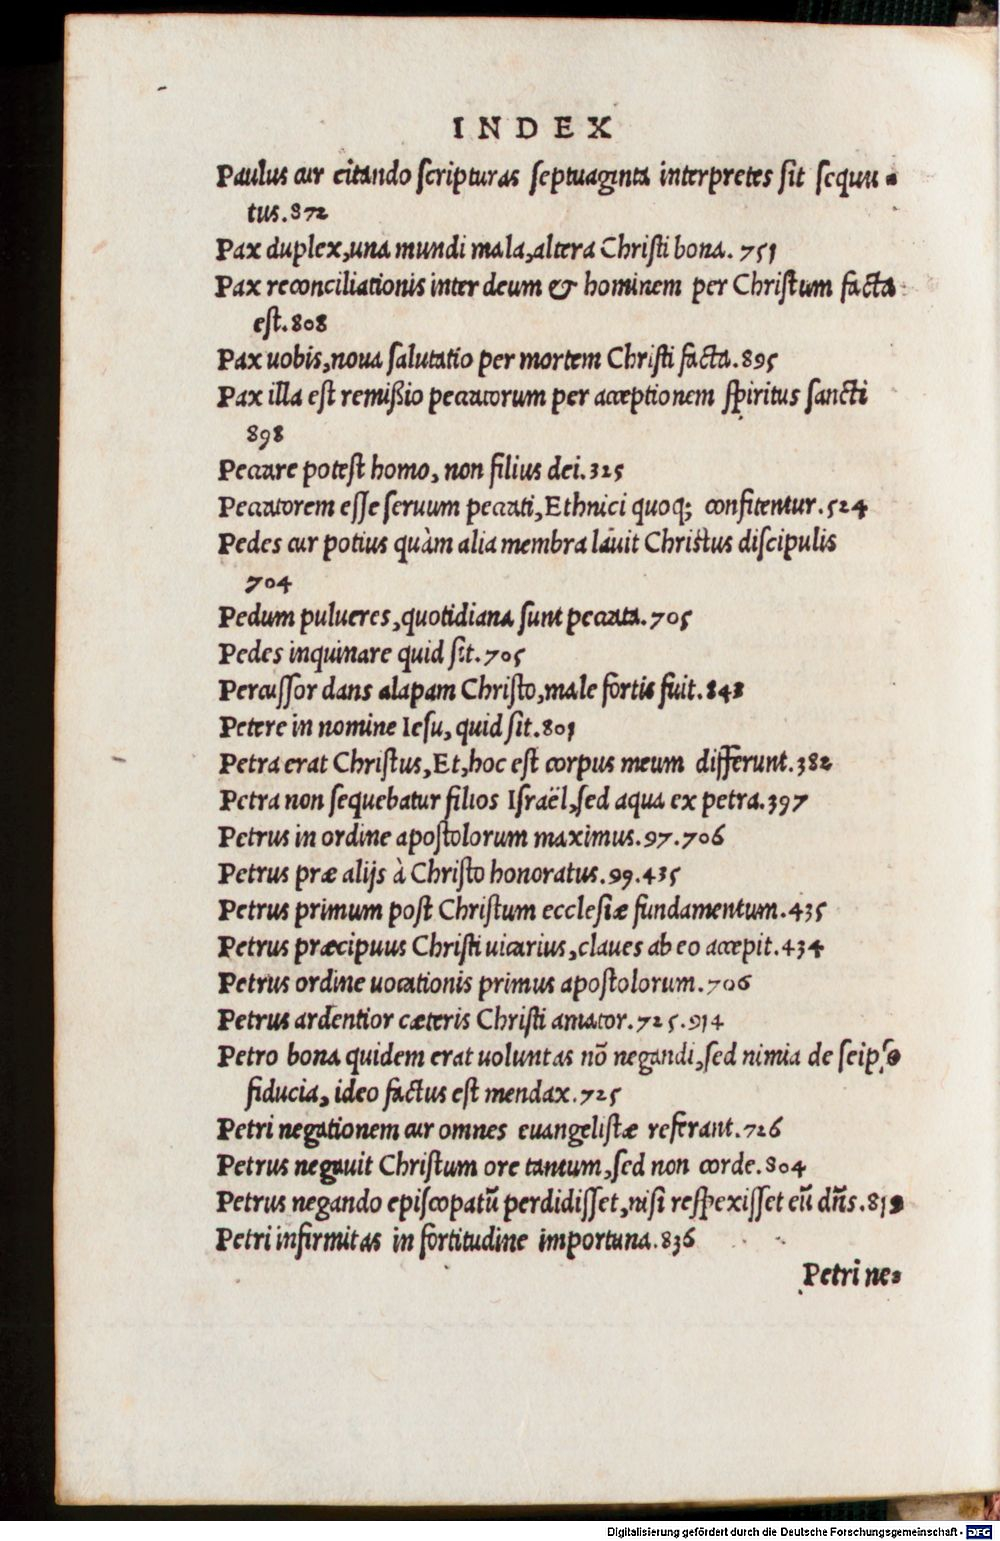 INDEX
Paulus cur citando ſcripturas ſeptuaginta interpretes ſit ſequu=
tus.872
Pax duplex,una mundi mala,altera Chriſti bona. 751
Pax reconciliationis inter deum & hominem per Chriſtum facta
eſt.808
Pax uobis,noua ſalutatio per mortem Chriſti facta.895
Pax illa eſt remißio peccatorum per acceptionem ſpiritus ſancti
898
Peccare poteſt homo, non filius dei.325
Peccatorem eſſe ſeruum peccati,Ethnici quoq; confitentur.524
Pedes cur potius quàm alia membra lauit Chriſtus diſcipulis
704
Pedum pulueres,quotidiana ſunt peccata.705
Pedes inquinare quid ſit.705
Percuſſor dans alapam Chriſto,male fortis fuit.848
Petere in nomine Ieſu, quid ſit.801
Petra erat Chriſtus,Et,hoc eſt corpus meum differunt.382
Petra non ſequebatur filios Iſraël,ſed aqua ex petra.397
Petrus in ordine apoſtolorum maximus.97.706
Petrus præ alijs à Chriſto honoratus.99.435
Petrus primum poſt Chriſtum eccleſiæ fundamentum.435
Petrus præcipuus Chriſti uicarius,claues ab eo accepit.434
Petrus ordine uocationis primus apoſtolorum.706
Petrus ardentior cæteris Chriſti amator.725.914
Petro bona quidem erat uoluntas nõ negandi,ſed nimia de ſeipſo
fiducia, ideo factus eſt mendax.725
Petri negationem cur omnes euangeliſtæ referant.726
Petrus negauit Chriſtum ore tantum,ſed non corde.804
Petrus negando epiſcopatũ perdidiſſet,niſi reſpexiſſet eũ dñs.819
Petri infirmitas in fortitudine importuna.836
Petri ne=
Digitalisierung gefördert durch die Deutsche Forschungsgemeinschaft - DFG